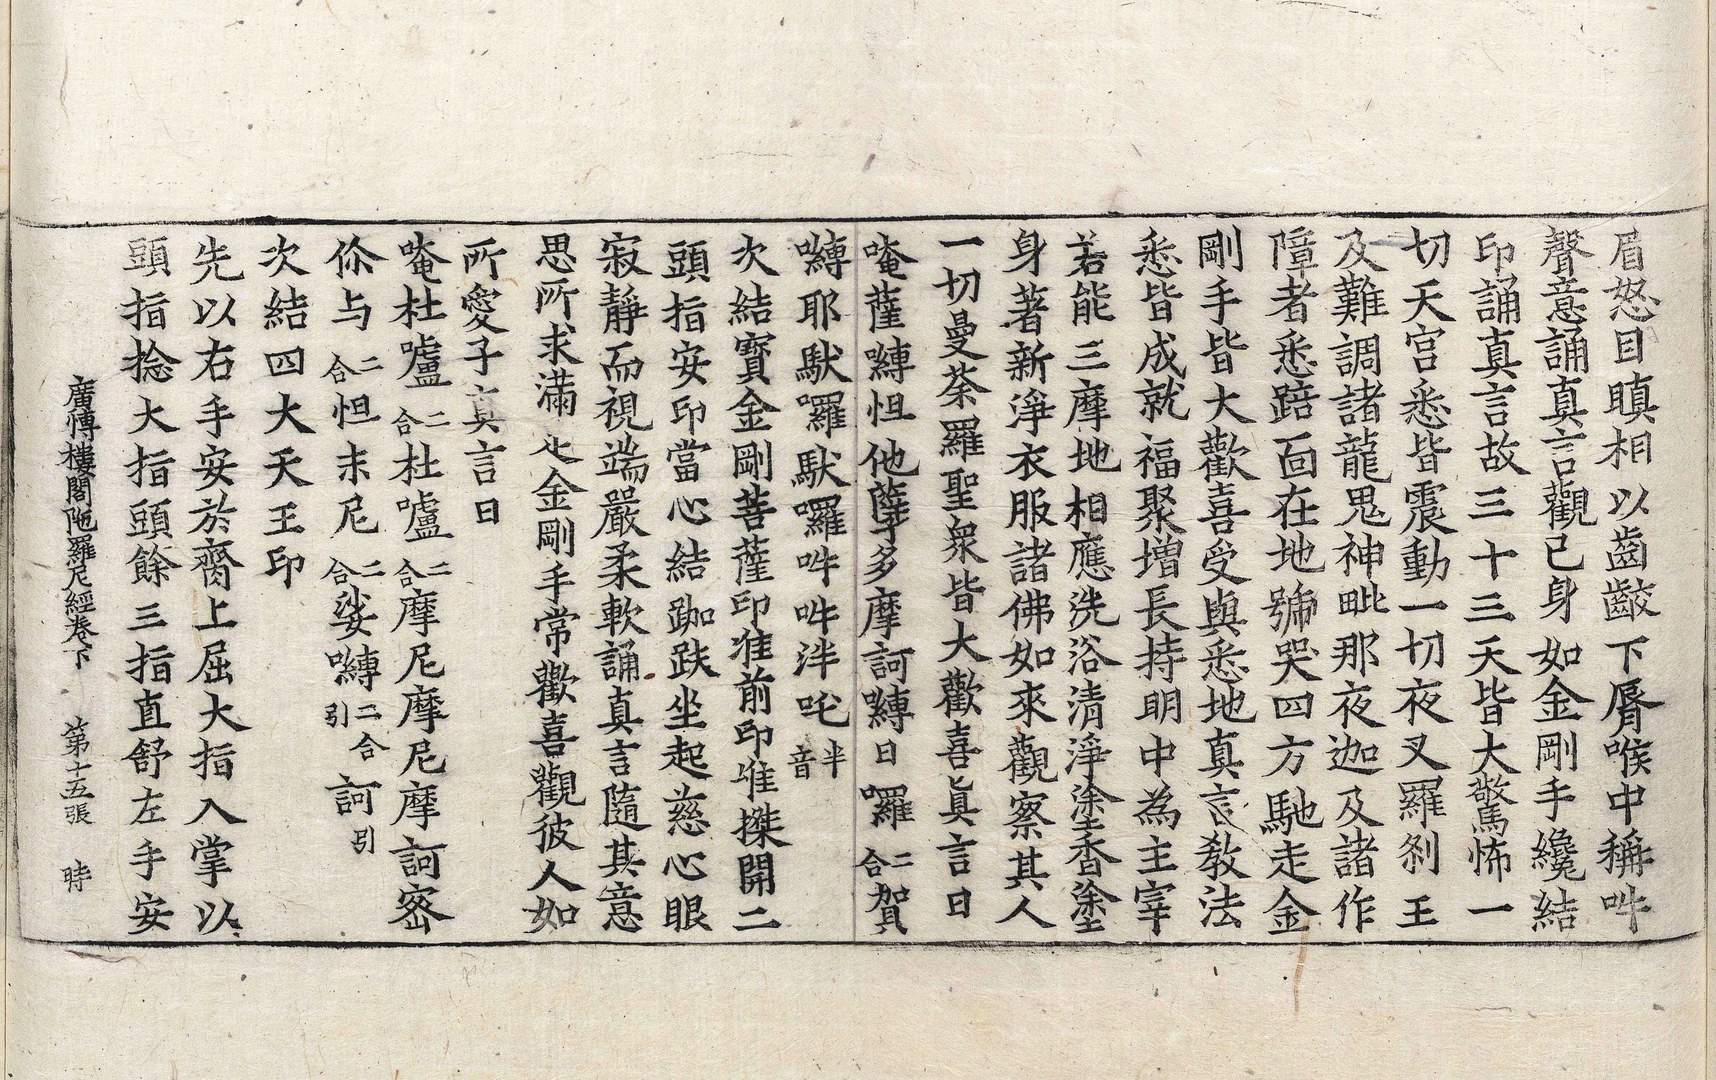 眉怒目瞋相以齒齩下脣喉中稱吽
聲意誦真言觀己身如金剛手纔結
印誦真言故三十三天皆大驚怖一
切天宮悉皆震動一切夜叉羅剎王
及難調諸龍鬼神毗那夜迦及諸作
障者悉踣面在地號哭四方馳走金
剛手皆大歡喜受與悉地真言教法
悉皆成就福聚增長持明中為主宰
若能三摩地相應洗浴清淨塗香塗
身著新淨衣服諸佛如來觀察其人
一切曼荼羅聖衆皆大歡喜真言曰
唵薩嚩怛他孽多摩訶嚩日囉二合賀
嚩耶馱囉馱囉吽吽泮吒半音
次結寶金剛菩薩印准前印唯搩開二
頭指安印當心結跏趺坐起慈心眼
寂靜而視端嚴柔軟誦真言隨其意
思所求滿足金剛手常歡喜觀彼人如
所愛子真言曰
唵杜嚧二合杜嚧二合摩尼摩尼摩訶密
你与二合怛末尼二合娑嚩二合引訶引
次結四大天王印
先以右手安於齊上屈大指入掌以
頭指捻大指頭餘三指直舒左手安
廣博樓閣陁羅尼經卷下 第十五張 時